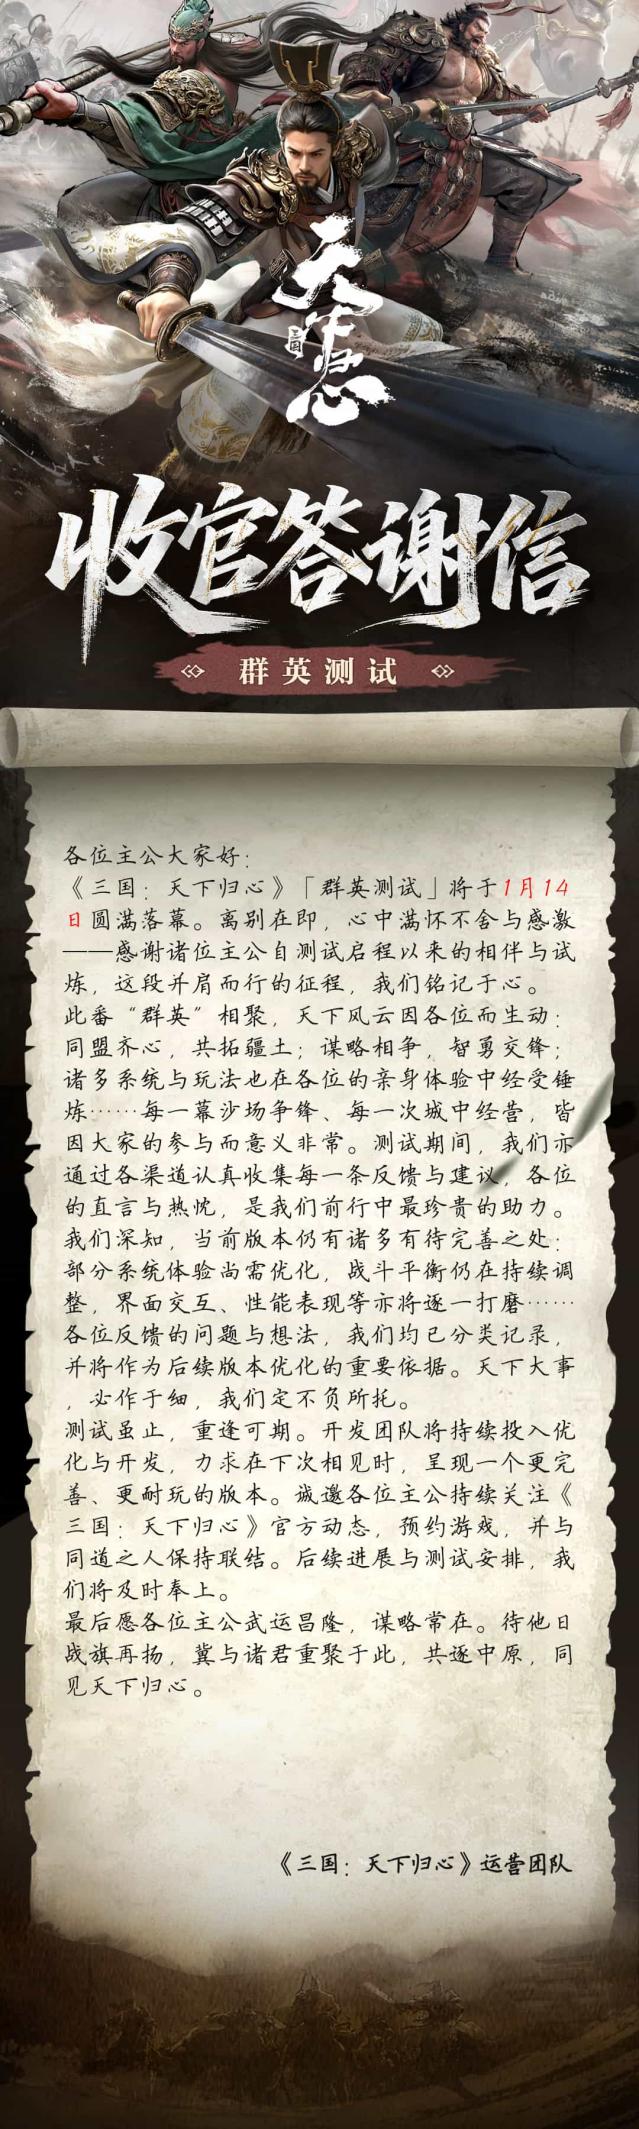 天下归心
三国
收官答谢信
群英测试
各位主公大家好：
《三国：天下归心》「群英测试」将于1月14
日圆满落幕。离别在即，心中满怀不舍与感激
——感谢诸位主公自测试启程以来的相伴与试
炼，这段并肩而行的征程，我们铭记于心。
此番“群英”相聚，天下风云因各位而生动：
同盟齐心，共拓疆土；谋略相争，智勇交锋；
诸多系统与玩法也在各位的亲身体验中经受锤
炼……每一幕沙场争锋、每一次城中经营，皆
因大家的参与而意义非常。测试期间，我们亦
通过各渠道认真收集每一条反馈与建议，各位
的直言与热忱，是我们前行中最珍贵的助力。
我们深知，当前版本仍有诸多有待完善之处：
部分系统体验尚需优化，战斗平衡仍在持续调
整，界面交互、性能表现等亦将逐一打磨……
各位反馈的问题与想法，我们均已分类记录，
并将作为后续版本优化的重要依据。天下大事
，必作于细，我们定不负所托。
测试虽止，重逢可期。开发团队将持续投入优
化与开发，力求在下次相见时，呈现一个更完
善、更耐玩的版本。诚邀各位主公持续关注《
三国：天下归心》官方动态，预约游戏，并与
同道之人保持联结。后续进展与测试安排，我
们将及时奉上。
最后愿各位主公武运昌隆，谋略常在。待他日
战旗再扬，冀与诸君重聚于此，共逐中原，同
见天下归心。
《三国：天下归心》运营团队